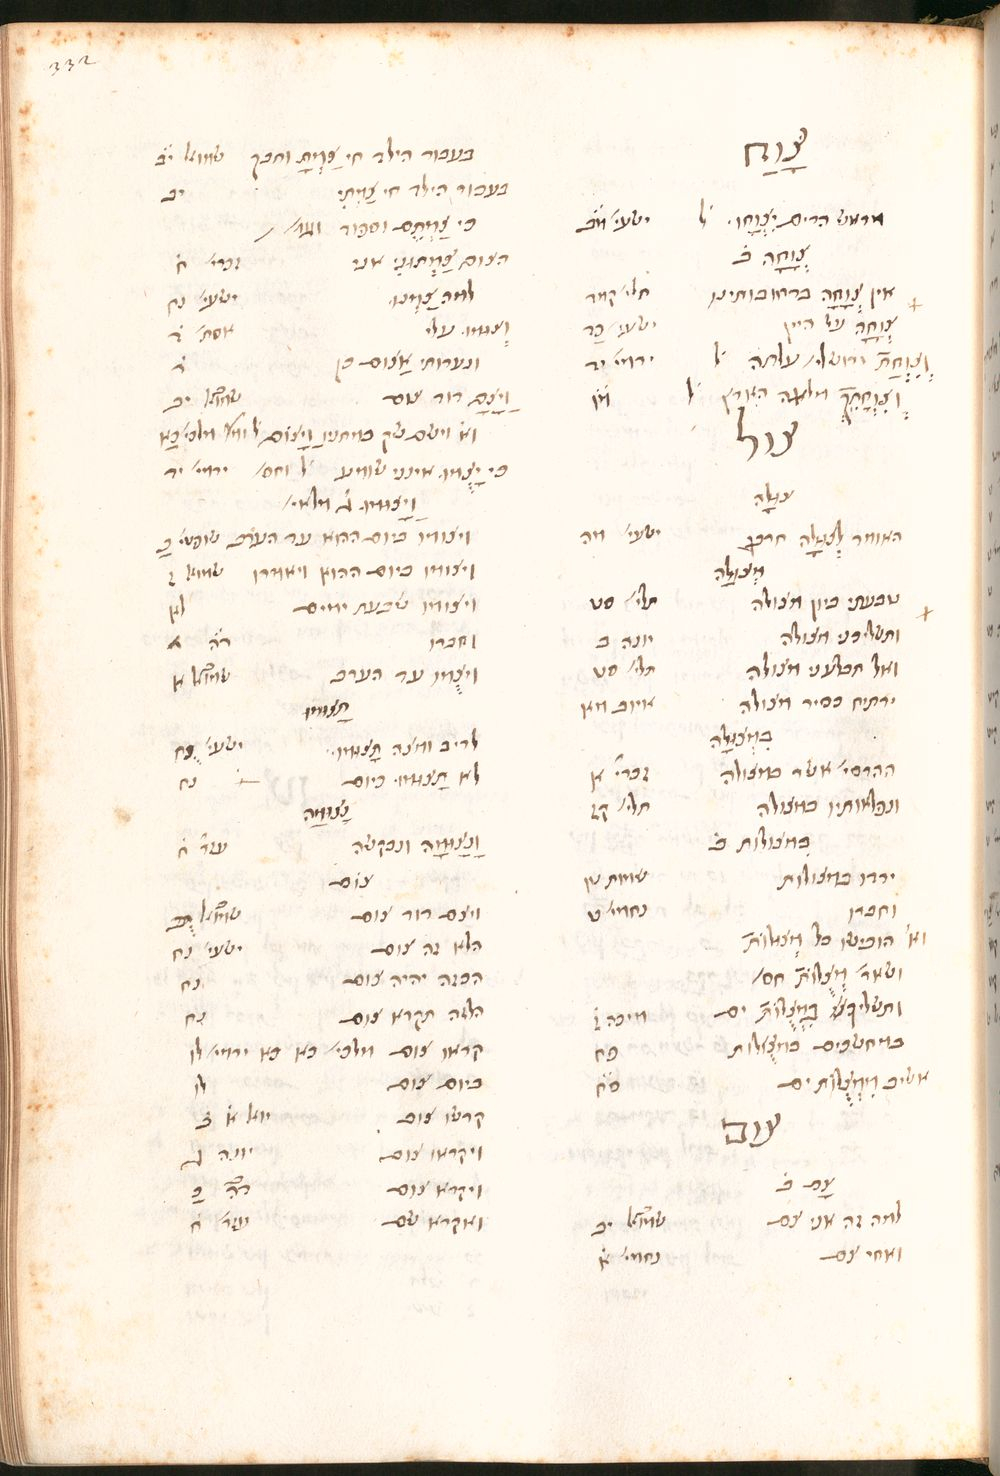 332
צָוַח
מראש הרים יִצְוָחוּ ל ישעי׳ מב
צְוָחָה ב
אין צְוָחָה ברחובותינו תלי׳ קמד
צְוָחָה על היין ישעי׳ כד
וְצִוְחַת ירושלי׳ עלתה ל ירמי׳ יד
וְצִוְחָתֵךְ מלאה הארץ ל
צול
צוּלָה
האומר לַצּוּלָה חרבי ישעי׳ מד
מְצוּלָה
טבעתי ביון מצולה תלי׳ סט
ותשליכני מצולה יונה ב
ואל תבלעני מצולה תלי׳ סט
ירתיח כסיר מצולה איוב מא
בִּמְצוּלָה
ההדסי׳ אשר במצולה זכרי׳ א
ונפלאותיו במצולה תלי׳ קז
במצולות ב
ירדו במצולות שמות טו
וחברו נחמי׳ ט
וא׳ הובישו כל מְצוּלוֹת
ושאר׳ מְצֻלוֹת חס׳
ותשליך בִּמְצֻלוֹת ים מיכה ז
במחשכים במְצֻלוֹת פח
אשיב מִמְּצֻלוֹת ים סח
צום
צָם ב
למה זה אני צם שמואל יב
ואהי צם נחמי׳ א
בעבור הילד חי צַמְתָּ ותבך שמואל יב
בעבור הילד חי צַמְתִּי יב
כי צַמְתֶּם וספוד
הצום צַמְתּוּנִי אני זכרי׳ ז
למה צַּמְנוּ ישעי׳ נח
וְצוּמוּ עלי אסת׳ ד
ונערותי אָצוּם כן ד
וַיָּצָם דוד צום שמואל יב
וא׳ וישם שק במתניו וַיָּצוֹם מלכי׳ כא
כי יָצֻמוּ אינני שומע ל וחס׳ ירמי׳ יד
וַיָּצוּמוּ ג מלאי׳
ויצומו ביום ההוא עד הערב שופטי׳ כ
ויצומו ביום ההוא ויאמרו שמוא׳ ז
ויצומו שבעת ימים לא
וחברו דה א
ויצֻמו עד הערב שמואל א
תָצוּמוּ
לריב ומצה תָּצוּמוּ ישעי׳ נח
לא תָצוּמוּ כיום נח
נָצוּמָה
וַנָּצוּמָה ונבקשה עזר׳ ח
צוֹם
ויצם דוד צום שמואל יב
הלא זה צום ישעי׳ נח
הכזה יהיה צום נח
הלזה תקרא צום נח
קראו צום מלכי׳ כא כא ירמי׳ לו
ביום צום לו
קדשו צום יואל א ב
ויקראו צום יונה ג
ויקרא צום דה כ
ואקרא שם עזר׳ ח